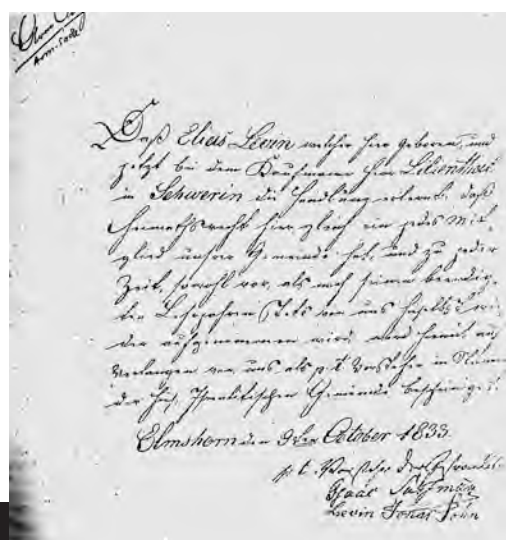 Daß Elias Levin welcher hier geboren, und
jetzt bei dem Kaufmann Herrn Lilienthal
in Schwerin die Handlung erlernt, daß
Heimathsrecht hier gleich ein jedes Mit-
glied unsrer Gemeinde hat, und zu jeder
Zeit, sowohl vor, als nach seinen beendig-
ten Lehrjahren stets von uns hieselbst wie-
der aufgenommen wird, wird hiemit auf
Verlangen von uns als p. t. Vorsteher in Namen
der hies. Israelitischen Gemeinde bescheiniget.
Elmshorn den 9ten October 1833.
p. t. Vorsteher der Israelit.
Isaac
Levin Jonas